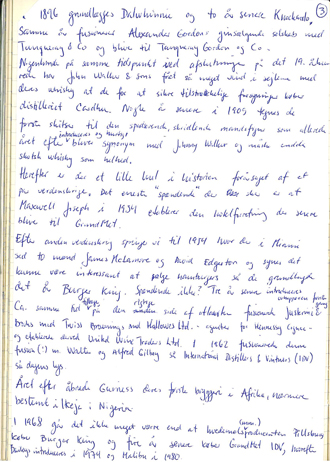 3
1896 grundlægges Dalwhinnie og to år senere Knockando
Samme år fusionerer Alexander Gordons ginsalgende selskab med
Tanqueray & Co og blive til Tanqueray Gordon og Co.
Nogenlunde på samme tidspunkt ved afslutningen på det 19. århun
rede har John Walker & Sons fået så meget vind i sejlene med
deres whisky at de for at sikre tilstrækkelige forsyninger køber
distilleriet Cardhu. Nogle år senere i 1908 tegnes de
første skitser til den spadserende, skridtende mandsfigur som allerede
året efter introduceres og hurtigt
bliver synonym med Johnny Walker og måske endda
skotsk whisky som helhed.
Herefter er der et lille hul i historien forårsaget af et
par verdenskrige. Det eneste "spændende" der sker er at
Maxwell Joseph i 1934 etablerer den hotelforretning der senere
blive til GrandMet.
Efter anden verdenskrig springe vi til 1954 hvor de i Miami
sad to mænd James McLamore og David Edgerton og synes det
kunne være interessant at sælge hamburgers så de grundlagde
det år Burger King. Spændende ikke? Tre år senere introduceres
Ca. samme tid på den anden side af atlanten fusionerede Justerini &
Brooks med Twiss Brownings and Hallowes Ltd. - agenter for Hennessy Cognac -
og etablerede derved United Wine Traders Ltd. I 1962 fusionerede denne
fusion (!) m Walter og Alfred Gilbey så International Distillers & Vintners (IDV)
så dagens lys.
Året efter åbnede Guiness deres første bryggeri i Afrika, nærmere
bestemt i Ikeja i Nigeria
I 1968 går det ikke meget værre end at hvedemelsproducenten Pillsbury
køber Burger King og fire år senere køber GrandMet IDV, hvorefter
Baileys introduceres i 1974 og Malibu i 1980.